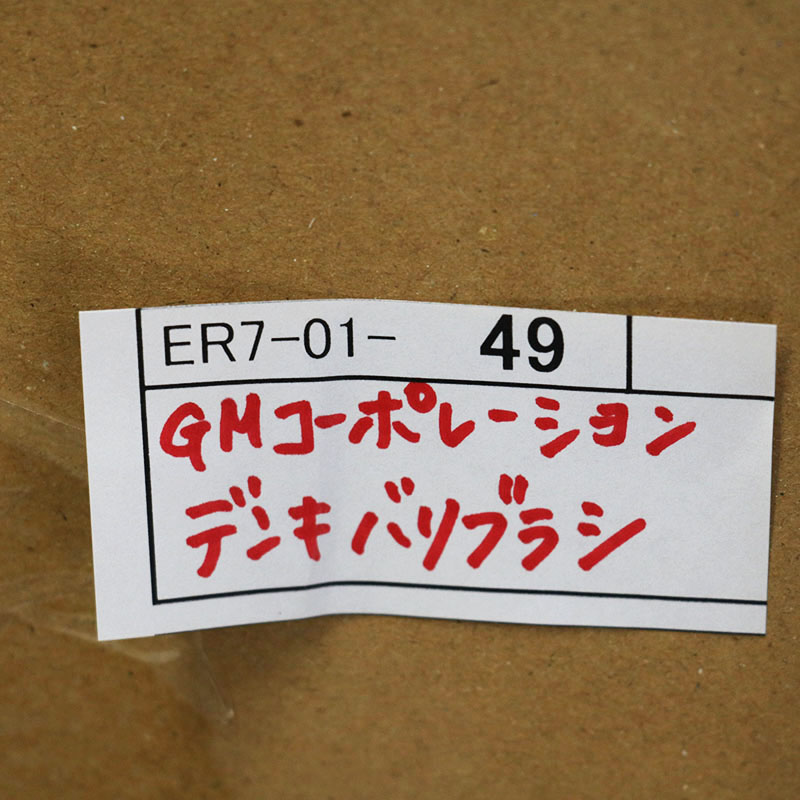 ER7-01- 49
GMコーポレーション
デンキバリブラシ